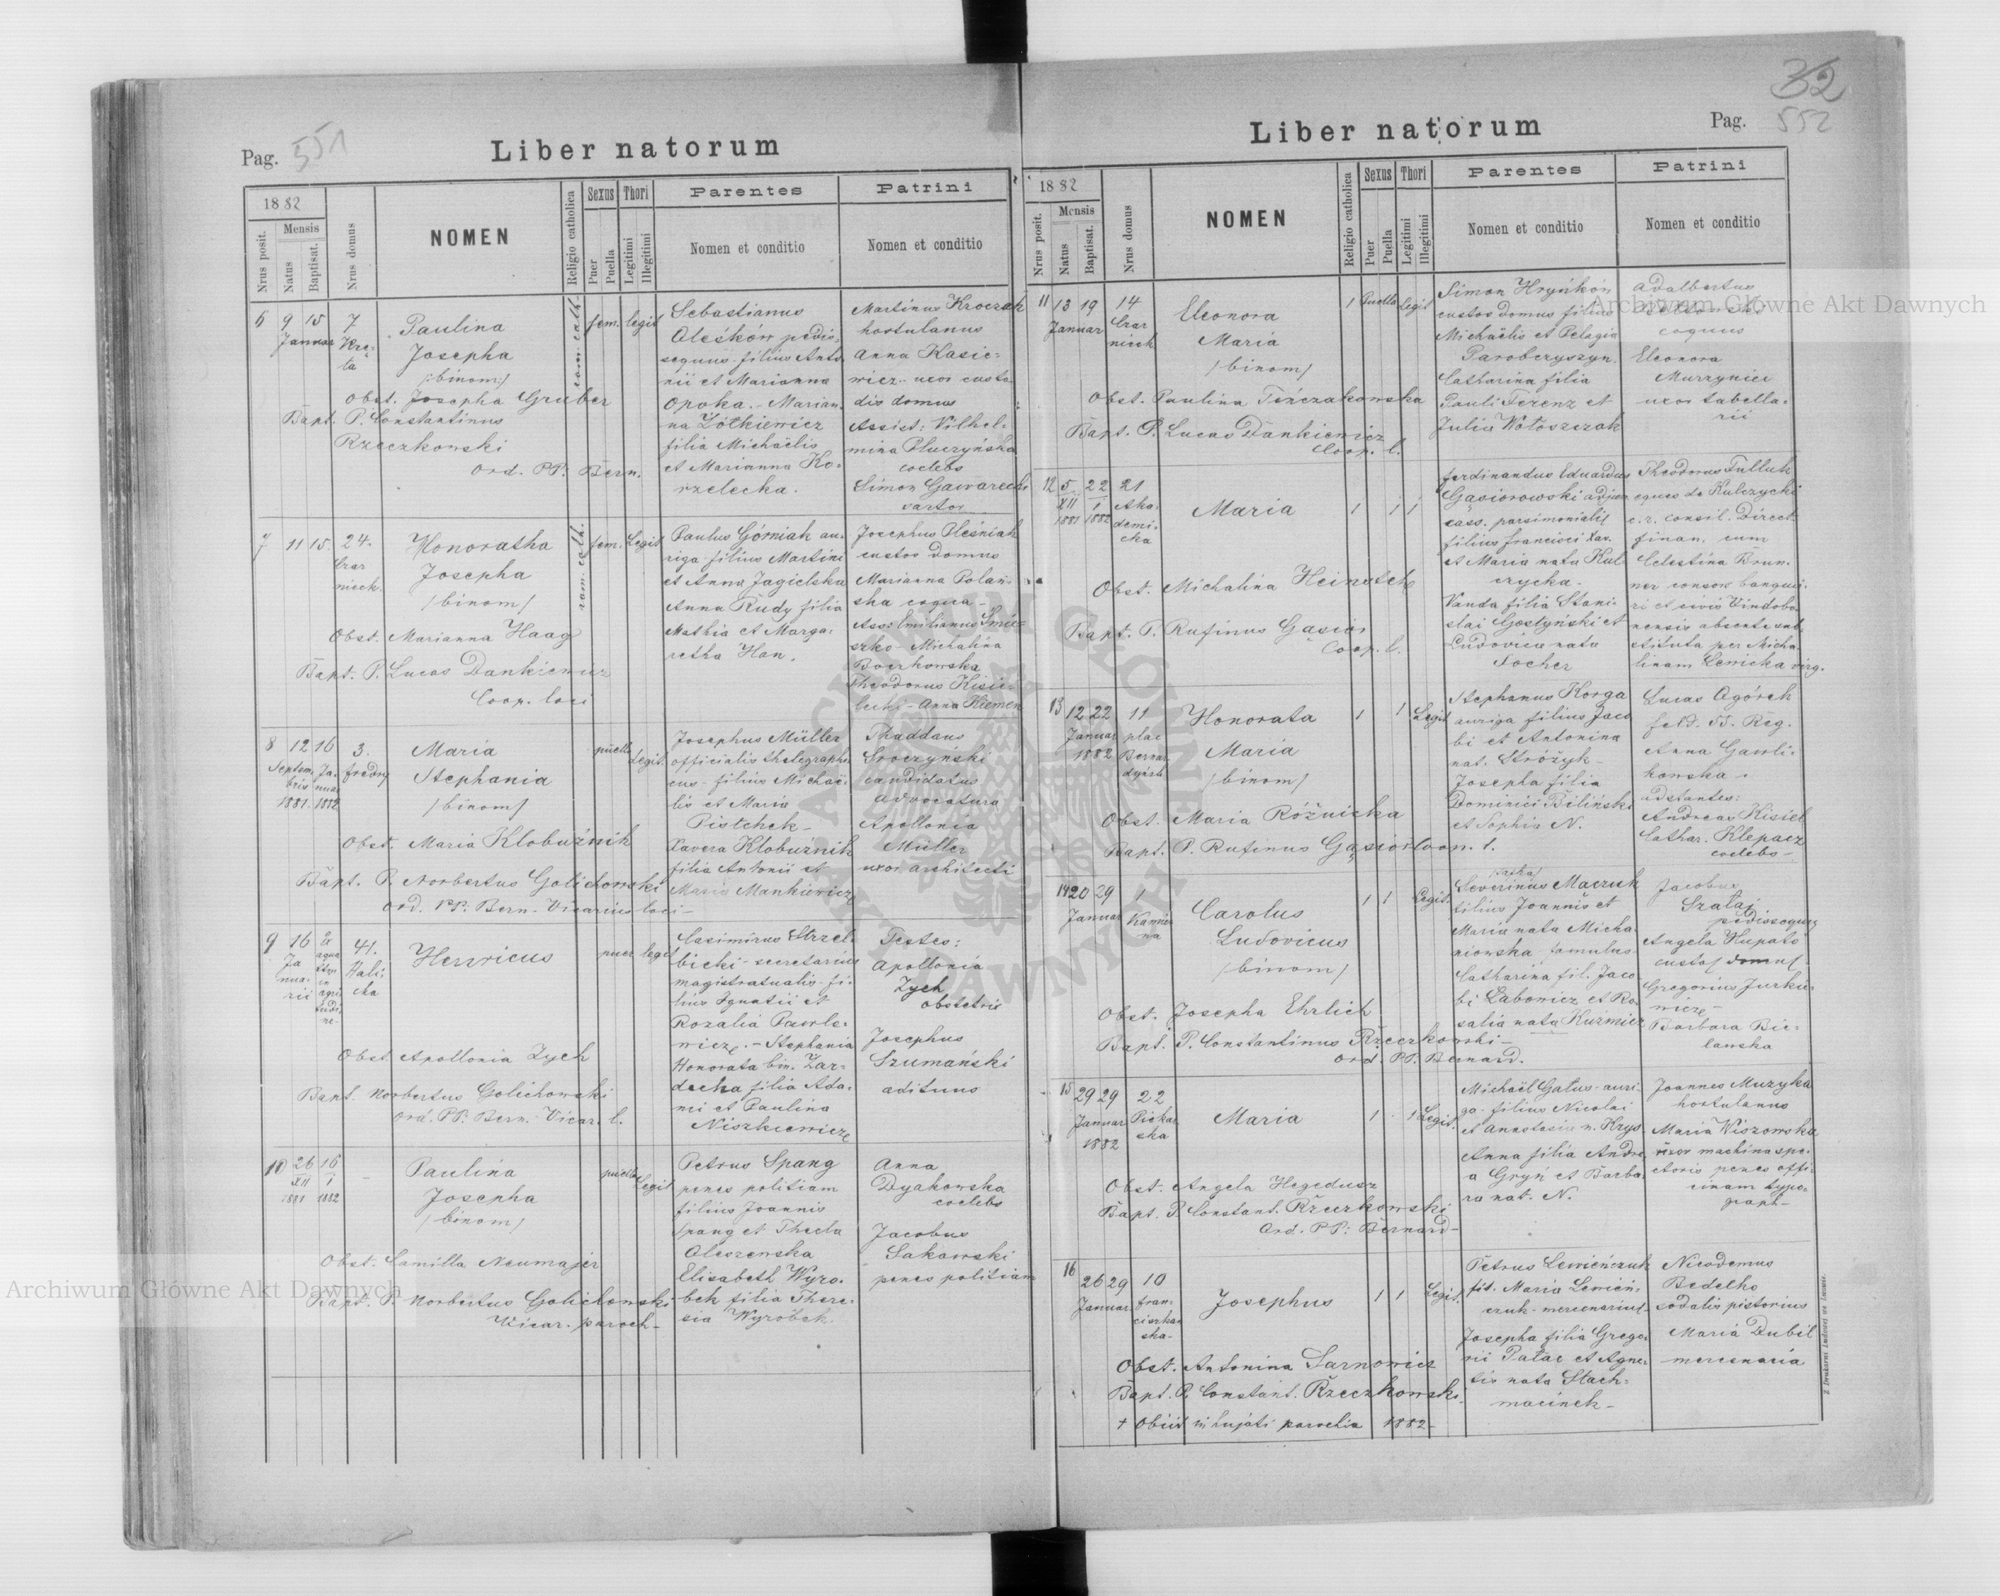 Pag. 551
Liber natorum
1882
Nrus posit.
Mensis
Natus
Baptisat.
Nrus domus
NOMEN
Religio catholica
Sexus
Puer
Puella
Thori
Legitimi
Illegitimi
Parentes
Nomen et conditio
Patrini
Nomen et conditio
6 9 15 7
Januar
Paulina
Josepha
/:binom:/
rom. cath.
fem. legit
Obst. Josepha Gruber
Bapt. P. Constantinus
Rzeczkowski
Ord. PP. Bern.
Sebastianus
Oleśków pedis-
sequus - filius Anto
nii et Marianna
Opoka. - Marian
na Żółkiewicz
filia Michaëlis
et Marianna Ko-
rzelecka.
Martinus Kroczak
hortulanus
Anna Kasie-
wicz - uxor custo
dis domus
Assist: Vilhel-
mina Pluczyńska
coelebs
Simon Gawarecki
sartor
7 11 15 24.
Czar
nieck.
Honoratha
Josepha
/binom/
rom. cath.
fem. Legit
Obst. Marianna Haag
Bapt. P. Lucas Dankiewicz
Coop. loci
Paulus Górniak au-
riga filius Martini
et Anna Jagielska
Anna Rudy filia
Mathia et Marga-
retha Han.
Josephus Pleśniak
custos domus
Marianna Polań-
ska coqua -
Ass: Emilianus
Michalina
Theodorus Kisie-
lecki - Anna Kiemen
8 12 16 3.
Septem
bris
1881.
Ja
nuar
1882
Fredry
Maria
Stephania
/binom/
puella
Legit.
Obst. Maria Klobuźnik
Bapt. P. Norbertus Golichowski
Ord. PP. Bern. Vicarius loci -
Josephus Müller
officialis thelegraphi
cus - filius Michaë-
lis et Maria
Pistchek -
Xavera Klobuźnik
filia Antonii et
Maria Mankiewicz
Thaddaus
Sroczyński
candidatus
advocatura
Apollonia
Müller
uxor architecti
9 16 41.
Ja
nua-
rii
Hali
cka
Henricus
puer legit
Obst. Apollonia Zych
Bapt. Norbertus Golichowski
Ord. PP. Bern. Vicar. l.
Casimirus Strzel-
bicki - secretarius
magistratualis - fi-
lius Ignatii et
Rozalia Pawlo-
wicz. - Stephania
Honorata bin. Zar-
decka filia Ada-
mi et Paulina
Niszkiewicz
Testes:
Apollonia
Zych
obstetrix
Josephus
Szumański
aedituus
10 26 16 -
XII I
1881 1882
Paulina
Josepha
/binom/
puella
Legit
Obst. Camilla Neumajer
Bapt. P. Norbertus Golichowski
Vicar. paroch -
Petrus Spang
penes politiam
filius Joannis
Spang et Thecla
Oleszewska
Elisabeth Wyro-
bek filia There-
sia Wyróbek
Anna
Dyakowska
coelebs
Jacobus
Sakowski
penes politiam
32
Pag. 552
Liber natorum
1882
Nrus posit.
Mensis
Natus
Baptisat.
Nrus domus
NOMEN
Religio catholica
Sexus
Puer
Puella
Thori
Legitimi
Illegitimi
Parentes
Nomen et conditio
Patrini
Nomen et conditio
11 13 19 14
Januar
Czar
nieck
Eleonora
Maria
/binom/
1 Puella Legit
Obst. Paulina Tęczakowska
Bapt. P. Lucas Dankiewicz
Coop. l.
Simon Hryńków
custos domus filius
Michaëlis et Pelagia
Paroberyszyn.
Catharina filia
Pauli Ferenz et
Julia Wołoszczak
Adalbertus
coquus
Eleonora
Murzyniec
uxor tabella-
rii
12 5 22 21
XII I
1881 1882
Aka-
demi-
cka
Maria
1 1 1
Obst. Michalina Heinstck
Bapt. P. Rufinus Gąsior
Coop. l.
Ferdinandus Eduardus
Gąsiorowski adjun
cass. parsimonialis
filius Francisci Xav.
et Maria nata Kul
czycka.
Vanda filia Stani-
slai Gostyński et
Ludovica nata
Socher
Theodorus Tulluk
eques de Kulczycki
c. r. consil. Direct.
finan. cum
Celestina Brun-
ner consors banqui-
ri et civis Vindobo
nensis absente sub
stituta per Micha
linam Lewicka virg.
13 12 22 11
Januar
1882
plac
Bernar
dyński
Honorata
Maria
/binom/
1 1 Legit
Obst. Maria Różnicka
Bapt. P. Rufinus Gąsior Coop. l.
Stephanus Korga
auriga filius Jaco
bi et Antonina
nat. Stróżyk -
Josepha filia
Dominici Biliński
et Sophia N.
Lucas Ogórek
feld. 55. Reg.
Anna Gawli-
kowska.
adstantes:
Andreas Kisiel
Cathar. Klepacz
coelebs -
14 20 29 1
Januar
Kamien
na
Carolus
Ludovicus
/binom/
1 1 Legit.
Obst. Josepha Ehrlich
Bapt. P. Constantinus Rzeczkowski -
Ord. PP. Bernard.
Severinus Maczuk
filius Joannis et
Maria nata Micha
niowska famulus
Catharina fil. Jaco
bi Labowicz et Ro
salia nata Kuźmicz
Jacobus
Szalaj
pedissequus
Angela Hupało
custos domus
Gregorius Jurkie-
wicz -
Barbara Bie-
lawska
15 29 29 22
Januar
1882
Piekar
ska
Maria
1 1 Legit.
Obst. Angela Hegedusz
Bapt. P. Constant. Rzeczkowski
Ord. PP. Bernard -
Michaël Gałus - auri-
ga - filius Nicolai
et Anastasia n. Krys
Anna filia Andre
a Gryń et Barba-
ra nat. N.
Joannes Muzyka
hortulanus
Maria Wiszowska
uxor machina spe-
ctoris penes offi
cinam typo-
graph -
16 26 29 10
Januar
Fran-
ciszka
ska -
Josephus
1 1 Legit.
Obst. Antonina Sarnowicz
Bapt. P. Constant. Rzeczkowski
+ Obiit in hujati parochia 1882 -
Petrus Lewieńczuk
fil. Maria Lewień-
czuk - mercenarius
Josepha filia Grego
rii Pałac et Agne-
tis nata Stach-
macinek -
Nicodemus
Bedelko
sodalis pistorius
Maria Dubil
mercenaria
Archiwum Główne Akt Dawnych
Archiwum Główne Akt Dawnych
ARCHIWUM GŁÓWNE AKT DAWNYCH